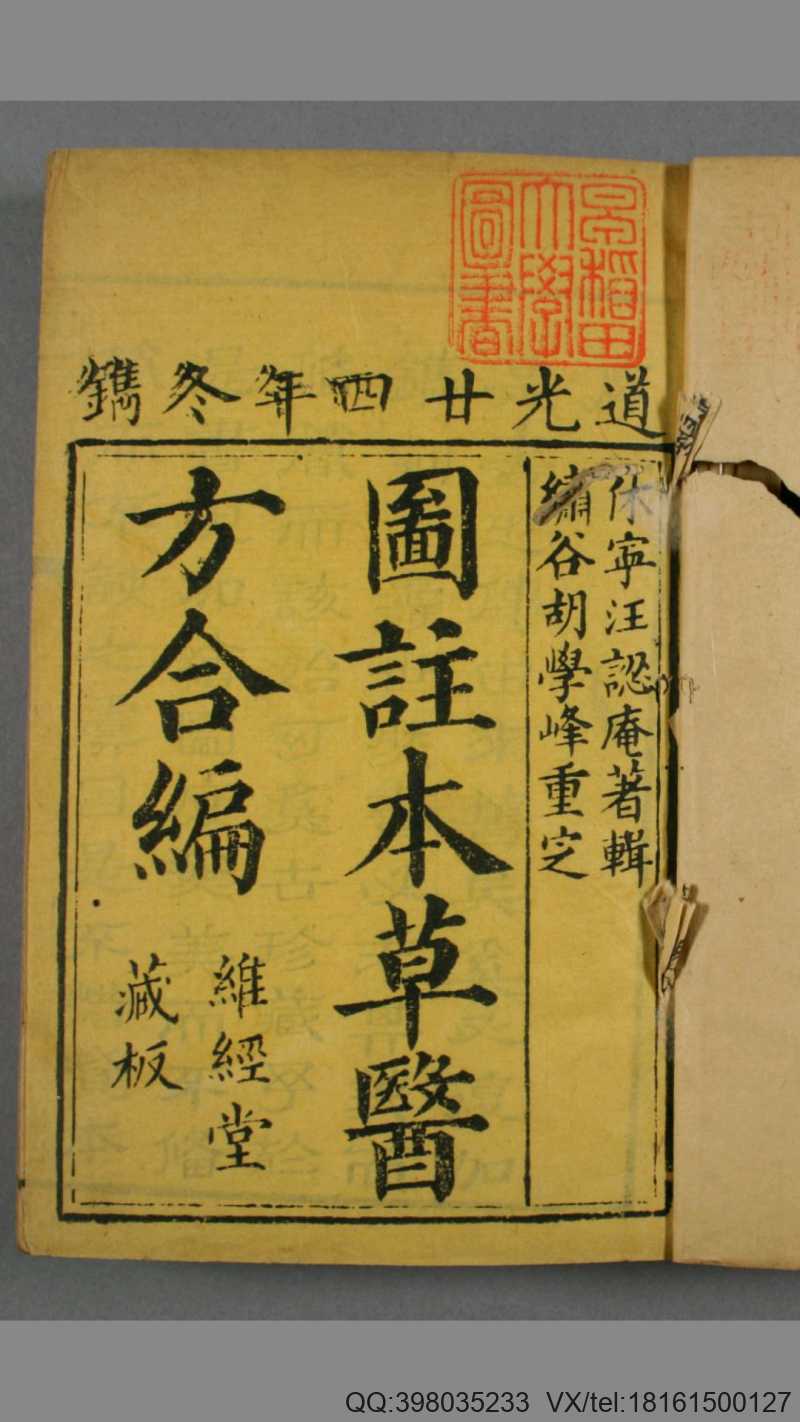 道光廿四年冬鐫
休寧汪訒庵著輯
繡谷胡學峰重定
圖註本草醫
方合編
維經堂
藏板
早稻田
大學
圖書
QQ:398035233 VX/tel:18161500127